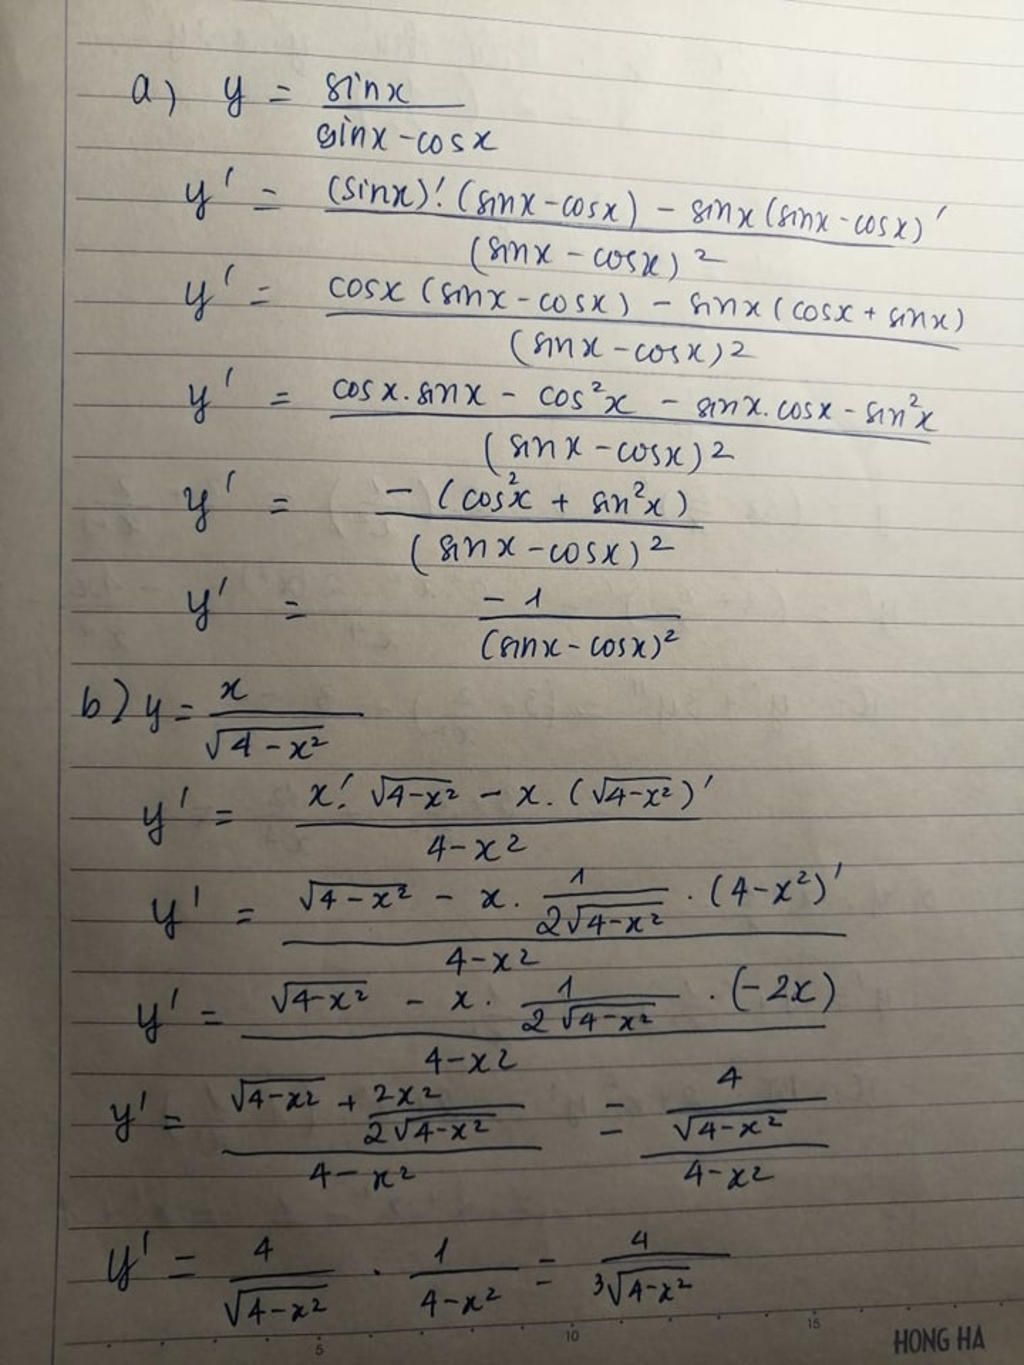 a) y = sinx / (sinx - cosx)
y' = ((sinx)'.(sinx - cosx) - sinx(sinx - cosx)') / (sinx - cosx)²
y' = (cosx(sinx - cosx) - sinx(cosx + sinx)) / (sinx - cosx)²
y' = (cosx.sinx - cos²x - sinx.cosx - sin²x) / (sinx - cosx)²
y' = -(cos²x + sin²x) / (sinx - cosx)²
y' = -1 / (sinx - cosx)²
b) y = x / √(4-x²)
y' = (x'.√(4-x²) - x.(√(4-x²))') / (4-x²)
y' = (√(4-x²) - x . 1/(2√(4-x²)) . (4-x²)') / (4-x²)
y' = (√(4-x²) - x . 1/(2√(4-x²)) . (-2x)) / (4-x²)
y' = (√(4-x²) + 2x²/(2√(4-x²))) / (4-x²) = (4/√(4-x²)) / (4-x²)
y' = 4/√(4-x²) . 1/(4-x²) = 4 / ³√(4-x²)
5 10 15 HONG HA